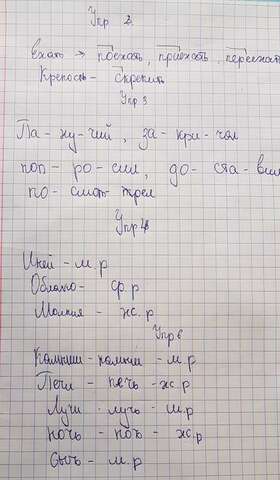 Упр 2
ехать → поехать, приехать, переехать
Крепость - скрепить
Упр 3
Па - ху - чий, за - кри - чал
поп - ро - сил, до - ста - вил
по - смот - рел
Упр 4
Иней - м.р
Облако - ср р
Молния - ж.р
Упр 6
Камыши - камыш - м.р
Печи - печь - ж.р
Лучи - луч - м.р
ночь - ж.р
м.р